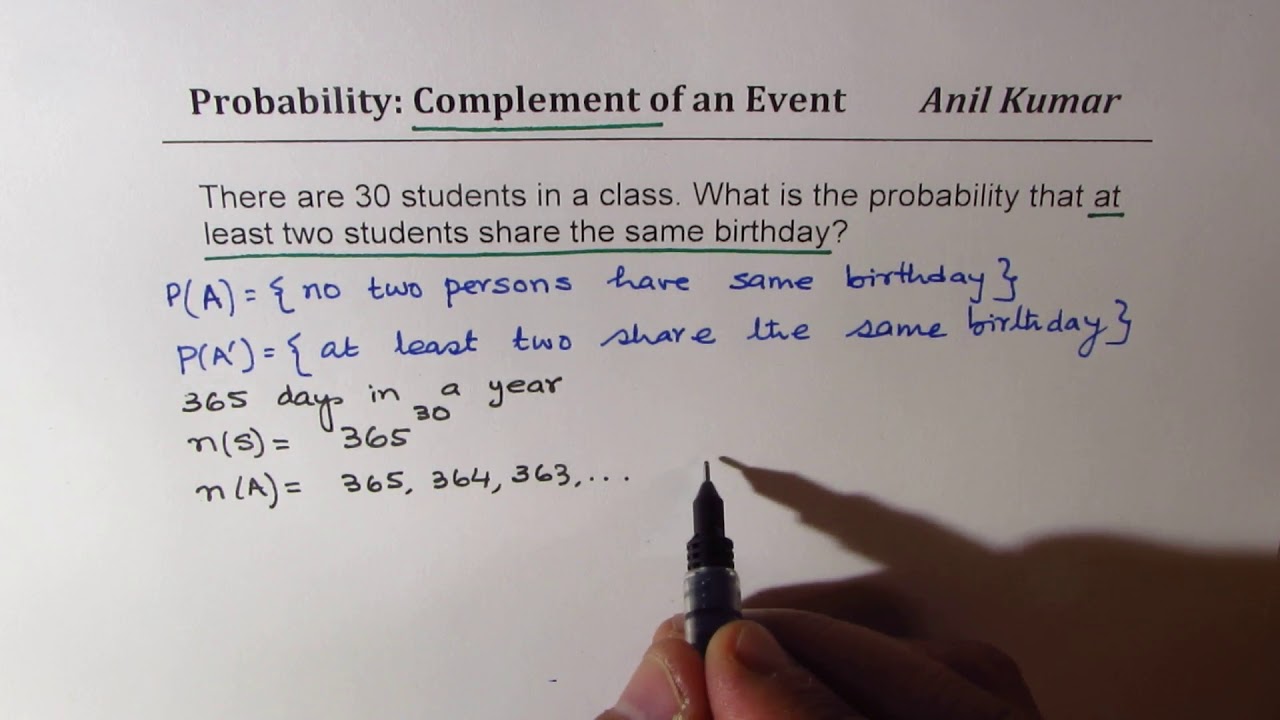 Probability: Complement of an Event Anil Kumar
There are 30 students in a class. What is the probability that at
least two students share the same birthday?
P(A) = { no two persons have same birthday }
P(A') = { at least two share the same birthday }
365 days in a year
n(S) = 365³⁰
n(A) = 365, 364, 363, ...